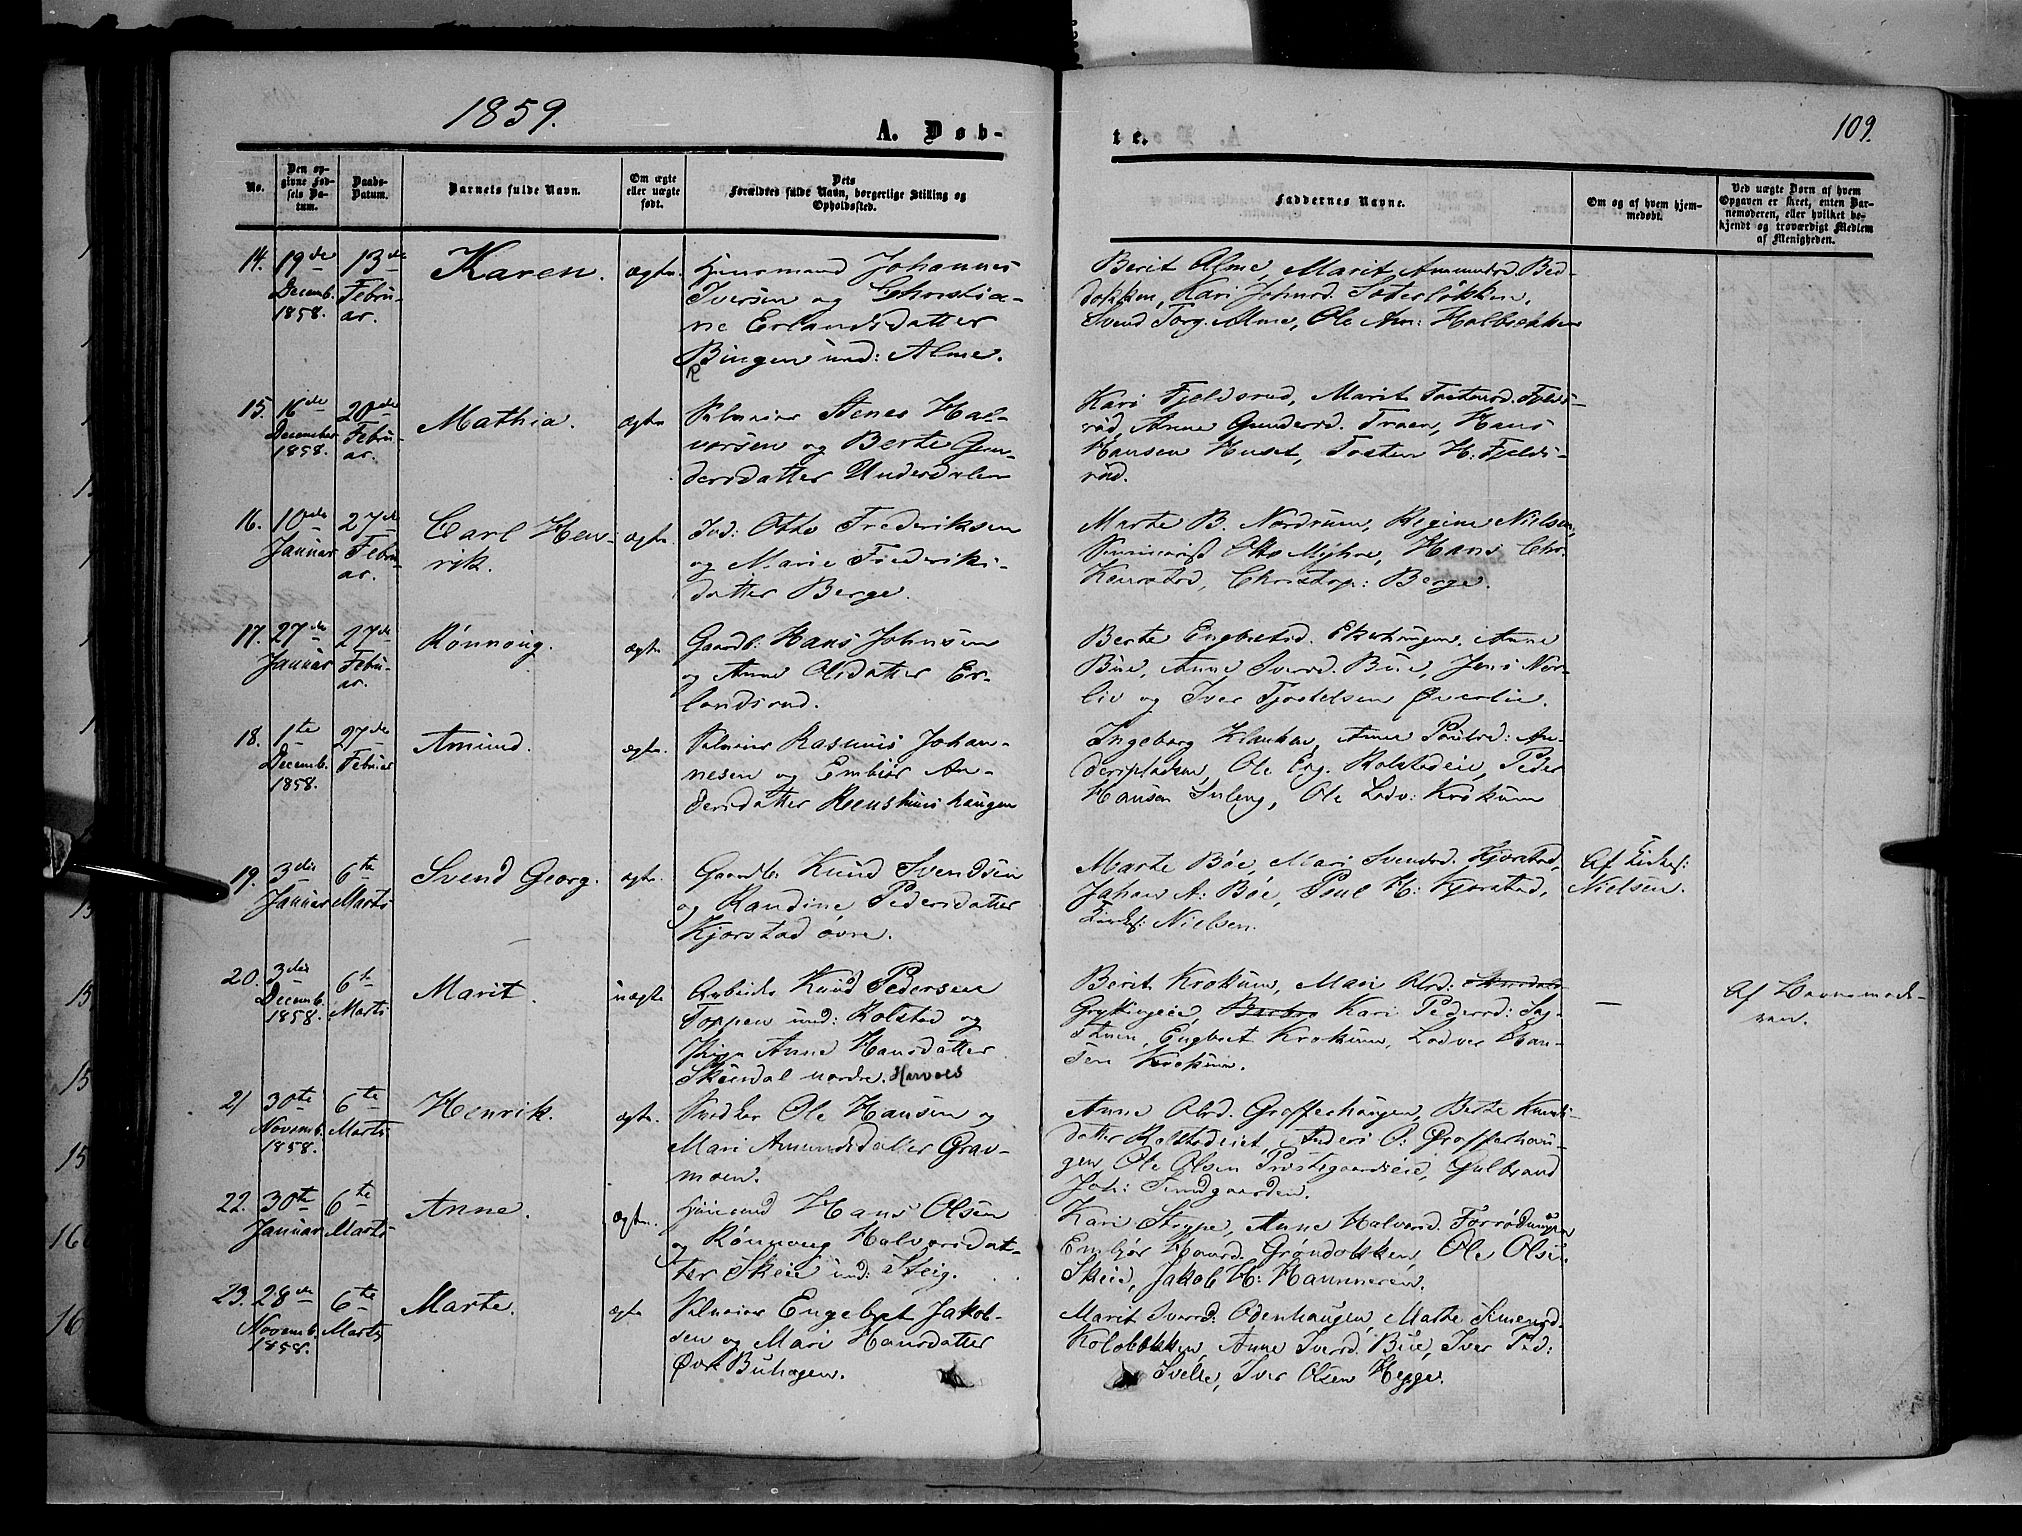 1859.
A. Døb-
te.
109.
No.
Den op-
givne Fød-
sels Da-
tum.
Daabs-
Datum.
Barnets fulde Navn.
Om ægte
eller uægte
født.
Dets
Forældres fulde Navn, borgerlige Stilling og
Opholdssted.
Faddernes Navne.
Om og af hvem hjem-
medøbt.
Ved uægte Børn af hvem
Opgaven er skeet, enten Bar-
nemoderen, eller hvilket be-
kjendt og troværdigt Medlem
af Menigheden.
14. 19de
Decemb.
1858.
13de
Febru-
ar.
Karen.
ægte.
Huusmand Johannes
Iversen og Christia-
ne Erlandsdatter
Bingen und: Alme.
Berit Alme, Marit Amundsd. Bed-
dokken, Kari Johnsd. Sæterløkken,
Svend Torg. Alme, Ole Am: Holbækken
15. 16de
December
1858.
20de
Febru-
ar.
Mathia.
ægte
Selveier Stener Hal-
vorsen og Berte Gun-
dersdatter Undersdalen
Kari Fjeldsrud, Marit Tostensd. Fjelds-
rud, Anne Gundersd. Troen, Hans
Hansen Huset, Tosten H: Fjelds-
rud.
16. 10de
Januar
27de
Febru-
ar.
Carl Hen-
rik.
ægte.
Ind: Otto Frederiksen
og Marie Frederiks-
datter Berge.
Marte B. Nordrum, Regine Nielsen,
Seminarist Otto Myhre, Hans Chr.
Kenstad, Christop: Berge.
17. 27de
Januar
27de
Febru-
ar.
Rønnoug.
ægte
Gaardb. Hans Johnsen
og Anne Olsdatter Er-
landsrud.
Berte Engbretsd. Ekerhaugen, Anne
Büe, Anne Iversd. Büe, Jens Nor-
lie og Iver Tjostelsen Øverlie.
18. 1ste
Decemb.
1858.
27de
Februar
Amund.
ægte.
Selveier Rasmus Johan-
nesen og Embiør An-
dersdatter Reenshuushaugen
Ingeborg Klauken, Anne Poulsd: An-
dersplassen, Ole Eng. Rolstadeie, Peder
Hansen Suleng, Ole Lodv: Krokum
19. 3die
Januar
6te
Marts
Svend Georg.
ægte.
Gaardb. Knud Svendsen
og Randine Pedersdatter
Kjorstad øvre.
Marte Bøe, Mari Svendsd. Kjorstad,
Johan A: Bøe, Poul H: Kjorstad,
Kirkes: Nielsen.
Af Kirkes:
Nielsen.
20. 3die
Decemb.
1858.
6te
Marts
Marit.
uægte
Arbeids. Knud Pedersen
Toppen und: Rolstad og
Pige Anne Hansdatter
Skurdal nordre.
Berit Krokum, Mari Olsd.
Gryttingeie, Kari Pedersd:
Engbret Krokum, Lodver Han-
sen Krokum.
—
Af Barnemode-
ren.
21 30te
Novemb.
1858.
6te
Marts
Henrik.
ægte.
Snedker Ole Hansen og
Mari Amundsdatter Grav-
moen.
Anne Olsd. Grofferhaugen, Berte Knuds-
datter Rolstadeiet, Anders O: Grofferhau-
gen, Ole Olsen Præstegaardseie, Gulbrand
Joh:
22. 30te
Januar
6te
Marts
Anne.
ægte.
Huusmd Hans Olsen
og Rønnoug Halvorsdat-
ter Skeie und: Steig.
Kari Strype, Anne Halvorsd.
Embjør Haavrsd. Grøndokken, Ole Olsen
Skeie, Jakob H: Hammeren.
23. 28de
Novemb.
1858.
6te
Marts
Marte.
ægte
Selveier Engebret Jakob-
sen og Mari Hansdatter
Øvre Buhagen.
Marit Iversd: Odenhaugen, Mathe Simensd.
Kolobækken, Anne Iversd. Büe, Iver Ped:
Svelle, Iver Olsen Hegge.